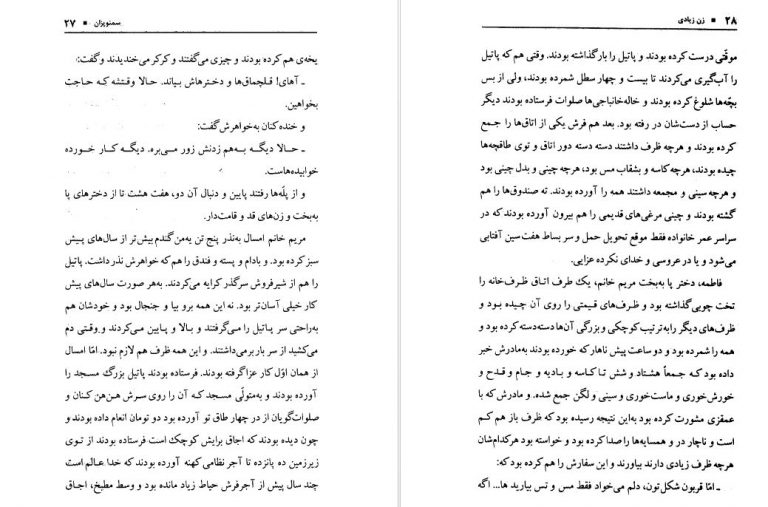 سمنوپزان ■ ۲۷
یخه‌ی هم کرده بودند و چیزی می‌گفتند و کرکر می‌خندیدند و گفت:
ـ آهای! قلچماق‌ها و دخترهاش بیاند. حالا وقتشه که حاجت
بخواهین.
و خنده‌کنان به‌خواهرش گفت:
ـ حالا دیگه به‌هم زدنش زور می‌بره. دیگه کار خورده
خوابیده‌هاست.
و از پلّه‌ها رفتند پایین و دنبال آن دو، هفت هشت تا از دخترهای پا
به‌بخت و زن‌های قد و قامت‌دار.
مریم خانم امسال به‌نذر پنج تن یه‌من گندم بیش‌تر از سال‌های پیش
سبز کرده بود. و بادام و پسته و فندق را هم که خواهرش نذر داشت. پاتیل
را هم از شیرفروش سرگذر کرایه می‌کردند. به‌هر صورت سال‌های پیش
کار خیلی آسان‌تر بود. نه این همه برو بیا و جنجال بود و خودشان هم
به‌راحتی سر پاتیل را می‌گرفتند و بالا و پایین می‌کردند و وقتی دم
می‌کشید از سر بار برمی‌داشتند. و این همه ظرف هم لازم نبود. امّا امسال
از همان اوّل کار عزا گرفته بودند. فرستاده بودند پاتیل بزرگ مسجد را
آورده بودند و به‌متولّی مسجد که آن را روی سرش هن‌هن کنان و
صلوات‌گویان از در چهار طاق تو آورده بود دو تومان انعام داده بودند و
چون دیده بودند که اجاق برایش کوچک است فرستاده بودند از توی
زیرزمین ده پانزده تا آجر نظامی کهنه آورده بودند که خدا عالم است
چند سال پیش از آجرفرش حیاط زیاد مانده بود و وسط مطبخ، اجاق
۲۸ ■ زن زیادی
موقّتی درست کرده بودند و پاتیل را بارگذاشته بودند. وقتی هم که پاتیل
را آب‌گیری می‌کردند تا بیست و چهار سطل شمرده بودند، ولی از بس
بچّه‌ها شلوغ کرده بودند و خاله‌خانباجی‌ها صلوات فرستاده بودند دیگر
حساب از دست‌شان در رفته بود. بعد هم فرش یکی از اتاق‌ها را جمع
کرده بودند و هرچه ظرف داشتند دسته دسته دور اتاق و توی طاقچه‌ها
چیده بودند، هرچه کاسه و بشقاب مس بود، هرچه چینی و بدل چینی بود
و هرچه سینی و مجمعه داشتند همه را آورده بودند. ته صندوق‌ها را هم
گشته بودند و چینی مرغی‌های قدیمی را هم بیرون آورده بودند که در
سراسر عمر خانواده فقط موقع تحویل حمل و سر بساط هفت‌سین آفتابی
می‌شود و یا در عروسی و خدای نکرده عزایی.
فاطمه، دختر پا به‌بخت مریم خانم، یک طرف اتاق ظرف‌خانه را
تخت چوبی گذاشته بود و ظرف‌های قیمتی را روی آن چیده بود و
ظرف‌های دیگر را به‌ترتیب کوچکی و بزرگی آن‌ها دسته‌دسته کرده بود و
همه را شمرده بود و دو ساعت پیش ناهار که خورده بودند به‌مادرش خبر
داده بود که جمعاً هشتاد و شش تا کاسه و بادیه و جام و قدح و
خورش‌خوری و ماست‌خوری و سینی و لگن جمع شده، و مادرش که با
عمقزی مشورت کرده بود به‌این نتیجه رسیده بود که ظرف باز هم کم
است و ناچار در و همسایه‌ها را صدا کرده بود و خواسته بود هرکدام‌شان
هرچه ظرف زیادی دارند بیاورند و این سفارش را هم کرده بود که:
ـ امّا قربون شکل‌تون، دلم می‌خواد فقط مس و تس بیارید ها... اگه